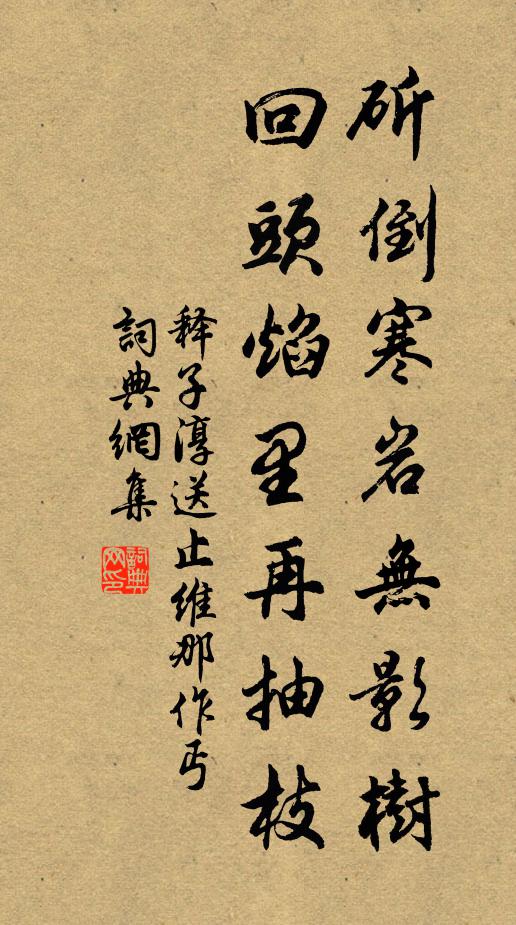 斫倒寒岩無影樹
回頭焰里再抽枝
释子淳送止維那作丐
詞典網集
詞典网印